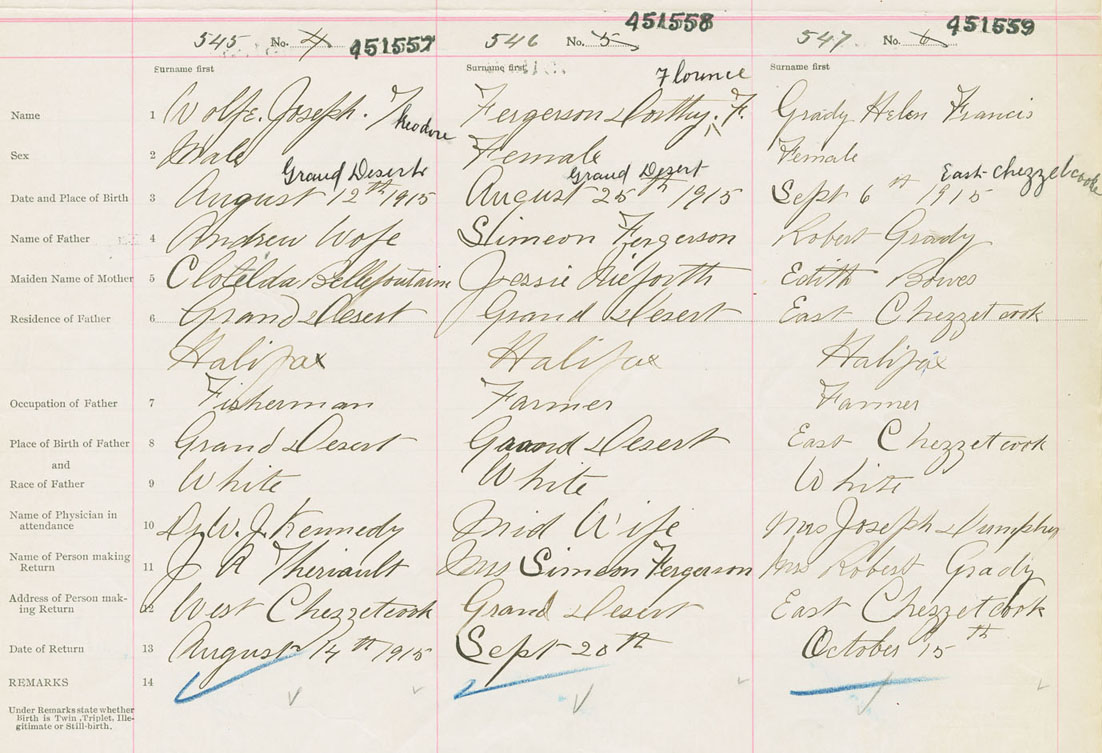 545 No. 4 451557 546 No. 5 451558 547 No. 6 451559
Surname first Surname first Surname first
Florence
Name 1 Wolfe. Joseph. Theodore Fergerson Dorthy. F. Grady Helen Francis
Sex 2 Male Female Female
Grand Desert Grand Desert East Chezzetcook
Date and Place of Birth 3 August 12th 1915 August 25th 1915 Sept 6th 1915
Name of Father 4 Andrew Wofe Simeon Fergerson Robert Grady
Maiden Name of Mother 5 Clotelda Bellefountaine Jessie Nieforth Edith Bowes
Residence of Father 6 Grand Desert Grand Desert East Chezzetcook
Halifax Halifax Halifax
Occupation of Father 7 Fisherman Farmer Farmer
Place of Birth of Father 8 Grand Desert Grand Desert East Chezzetcook
and
Race of Father 9 White White White
Name of Physician in
attendance 10 Dr W. J. Kennedy Mid Wife Mrs Joseph Dumphy
Name of Person making
Return 11 J A Theriault Mrs Simeon Fergerson Mrs Robert Grady
Address of Person mak-
ing Return 12 West Chezzetcook Grand Desert East Chezzetcook
Date of Return 13 August 14th 1915 Sept 20th October 15th
REMARKS 14
Under Remarks state whether
Birth is Twin, Triplet, Ille-
gitimate or Still-birth.